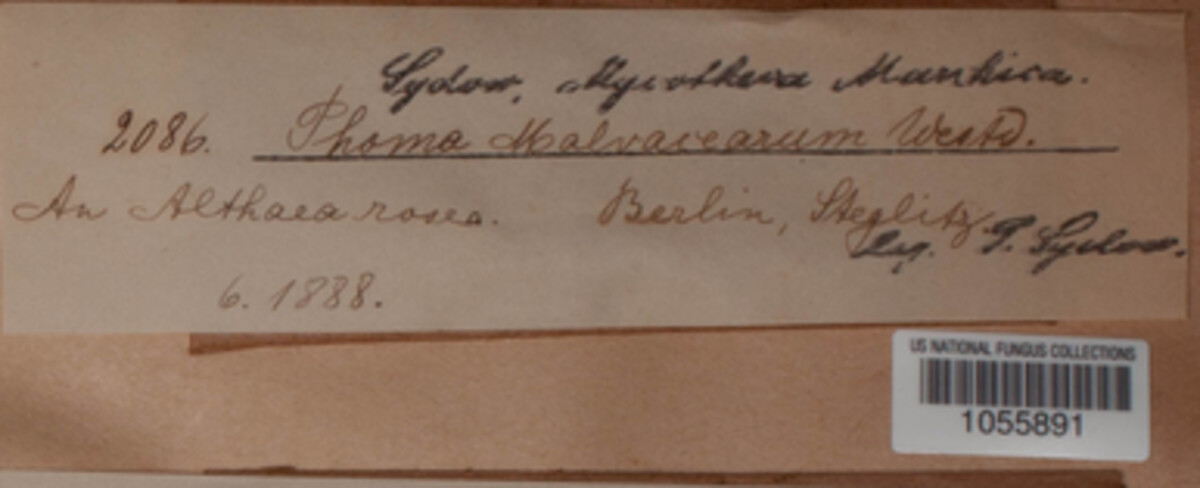 Sydow, Mycotheca Marchica.
2086. Phoma Malvacearum Westd.
An Althaea rosea. Berlin, Steglitz
Leg. P. Sydow.
6. 1888.
US NATIONAL FUNGUS COLLECTIONS
1055891